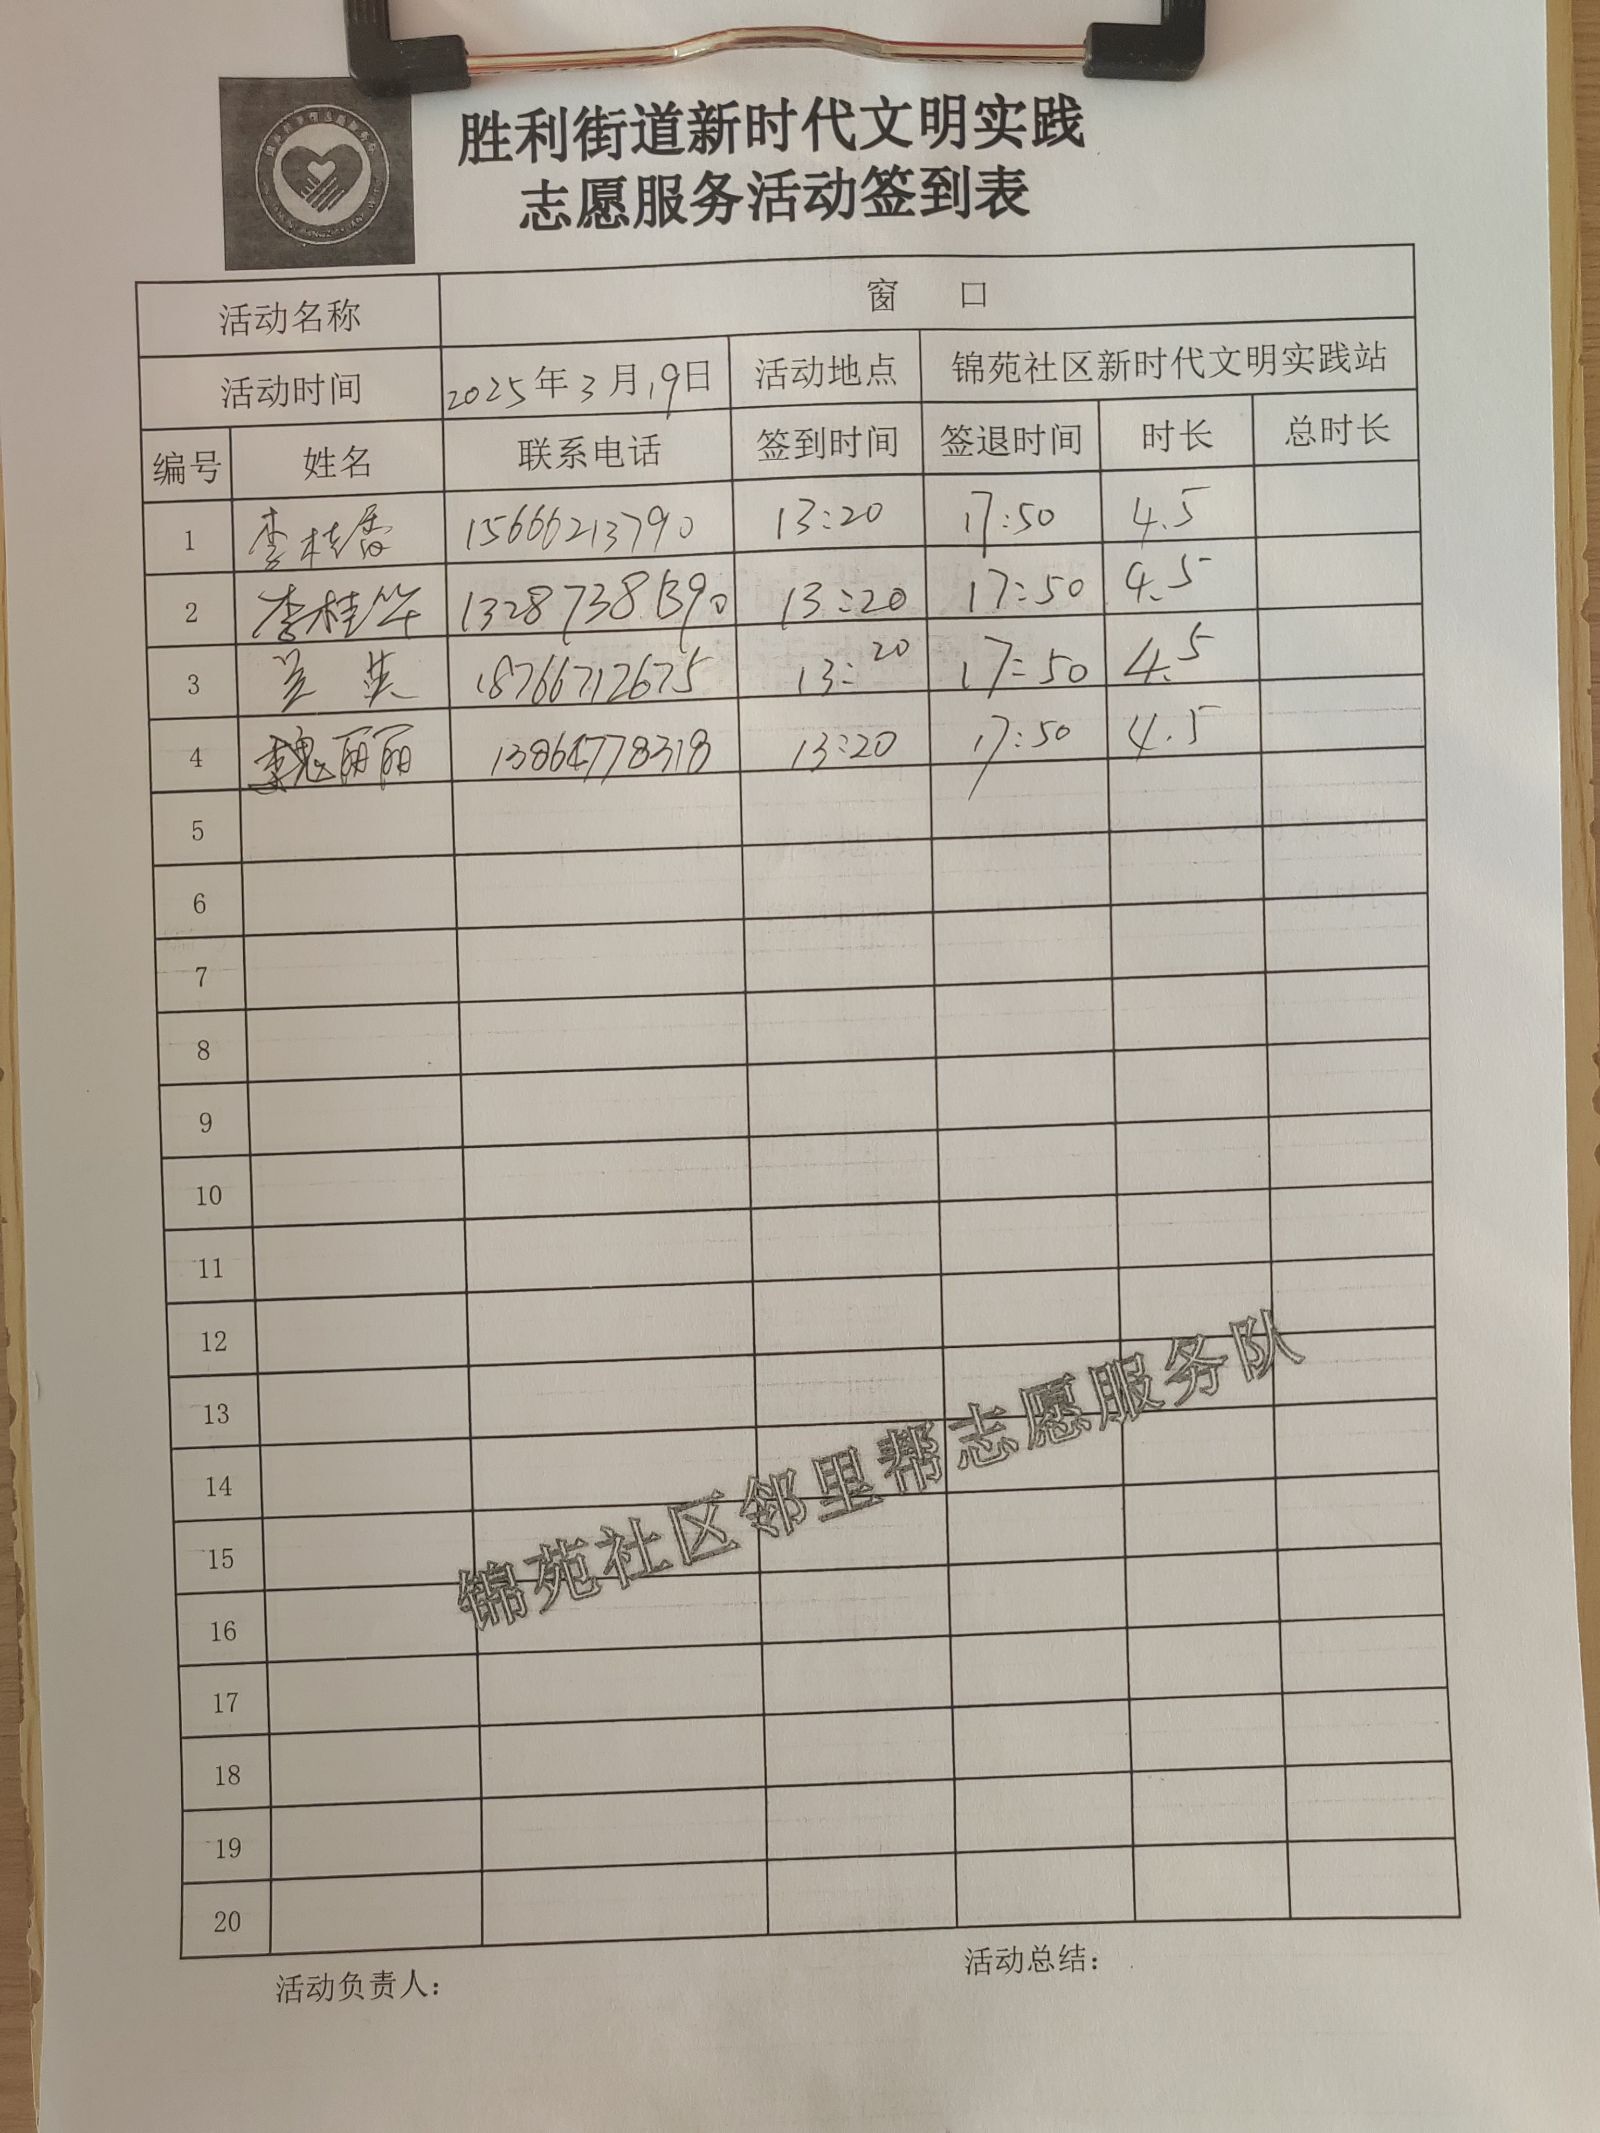 胜利街道新时代文明实践
志愿服务活动签到表
活动名称 窗 口
活动时间 2025年3月19日 活动地点 锦苑社区新时代文明实践站
编号 姓名 联系电话 签到时间 签退时间 时长 总时长
1 李桂香 15666213790 13:20 17:50 4.5
2 李桂华 13287381390 13:20 17:50 4.5
3 兰英 18766712675 13:20 17:50 4.5
4 魏丽丽 13864778318 13:20 17:50 4.5
5
6
7
8
9
10
11
12
13
14
15
16
17
18
19
20
锦苑社区邻里帮志愿服务队
活动负责人： 活动总结：